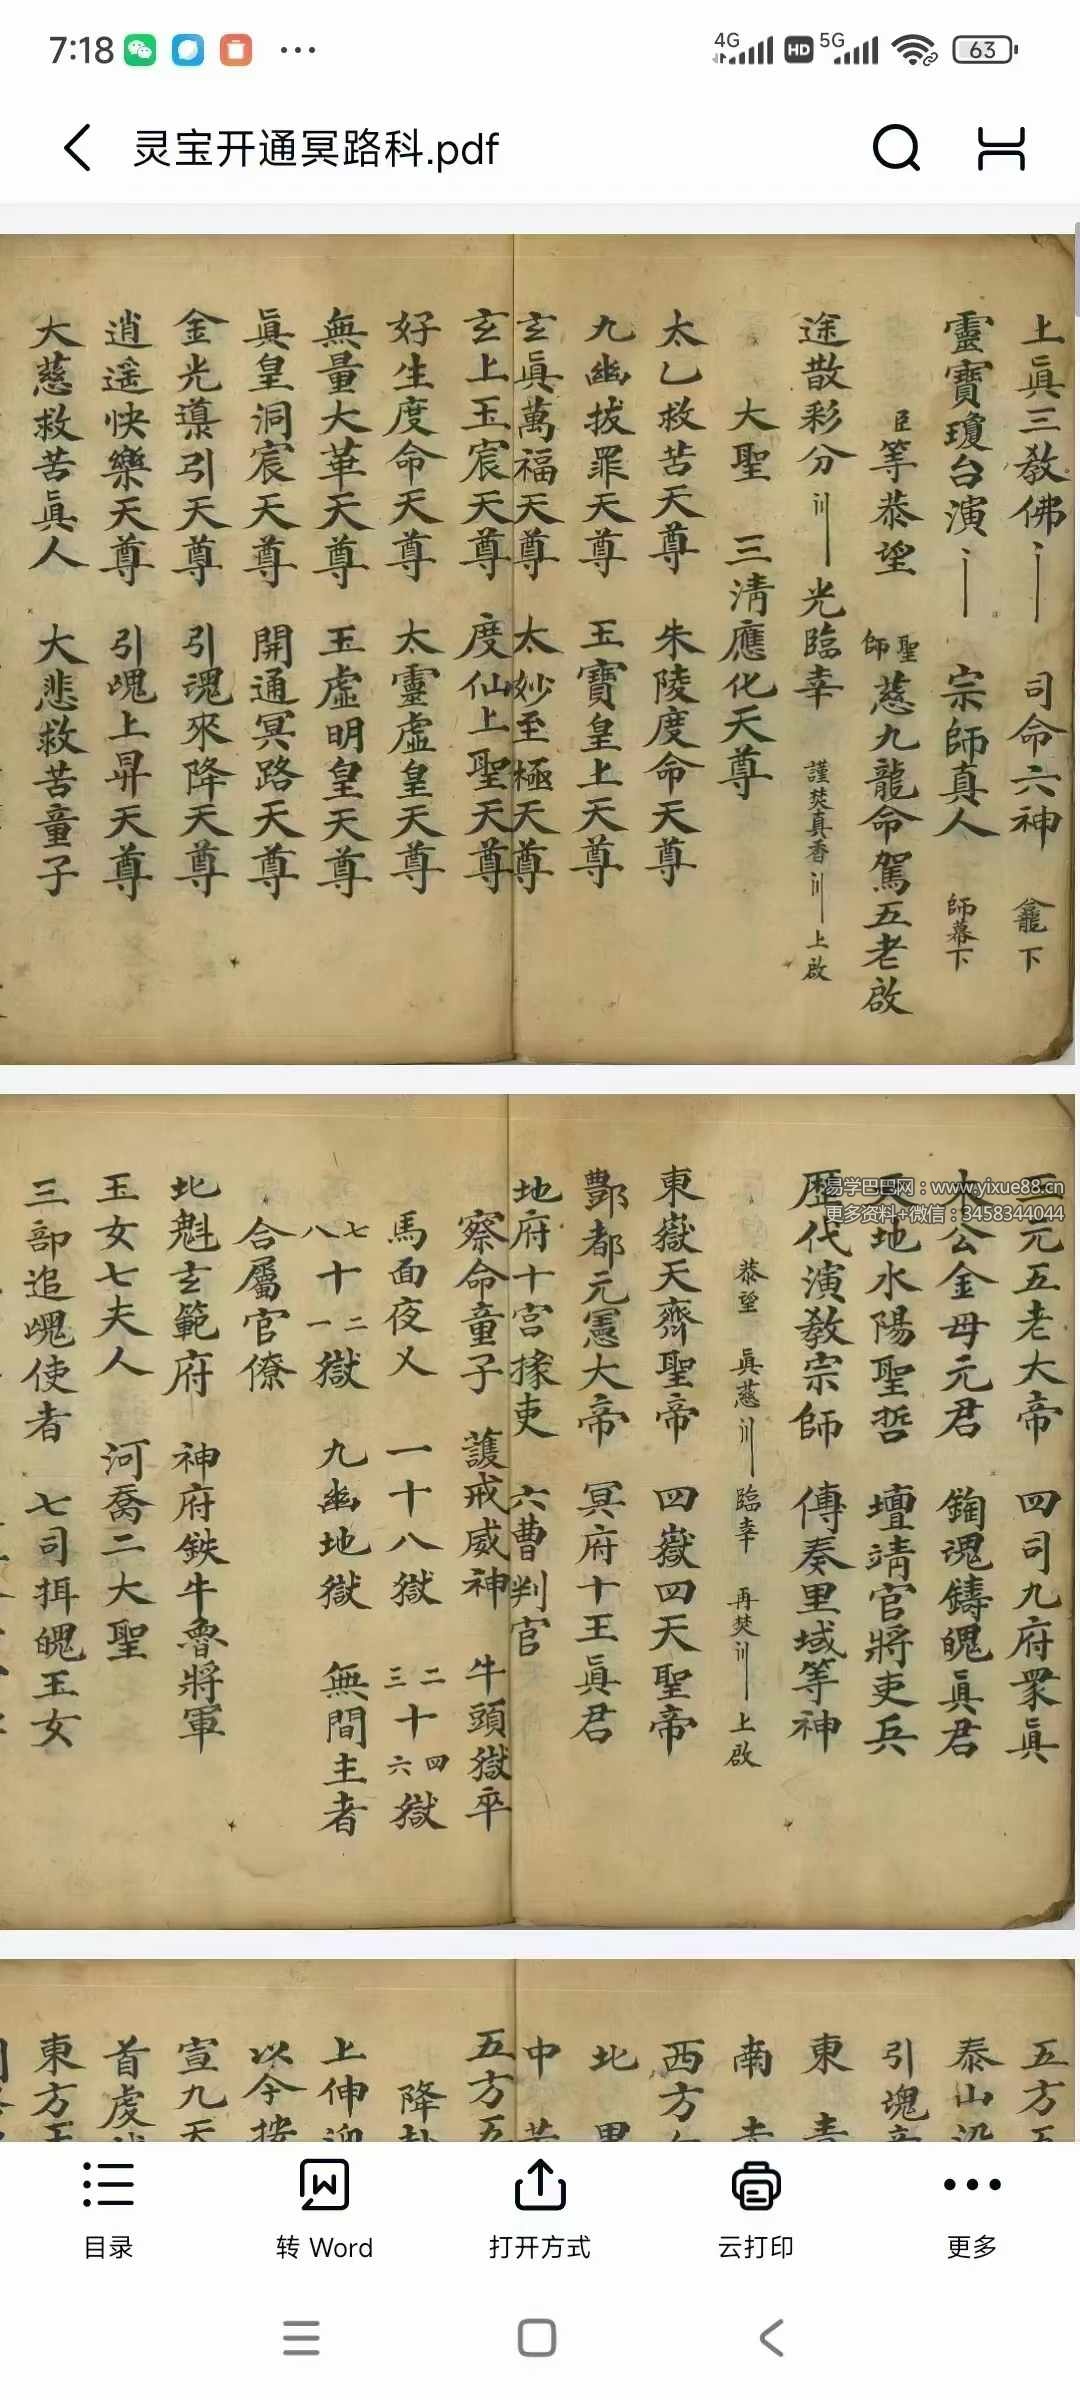 7:18
4G HD 5G 63
灵宝开通冥路科.pdf
上眞三教佛 司命六神 下
靈寶瓊台演 宗師真人 師幕下
臣等恭望 聖師慈九龍命駕五老啟
途散彩分 光臨幸 謹焚真香 上啟
大聖 三清應化天尊
太乙救苦天尊 朱陵度命天尊
九幽拔罪天尊 玉寶皇上天尊
玄眞萬福天尊 太妙至極天尊
玄上玉宸天尊 度仙上聖天尊
好生度命天尊 太靈虛皇天尊
無量大華天尊 玉虛明皇天尊
眞皇洞宸天尊 開通冥路天尊
金光導引天尊 引魂來降天尊
逍遥快樂天尊 引魂上昇天尊
大慈救苦眞人 大悲救苦童子
易学巴巴网：www.yixue88.cn
更多资料+微信：3458344044
三元五老大帝 四司九府眾眞
木公金母元君 鍧魂鑄魄眞君
天地水陽聖哲 壇靖官將吏兵
歷代演教宗師 傳奏里域等神
恭望 眞慈 臨幸 再焚 上啟
東嶽天齊聖帝 四嶽四天聖帝
酆都元憲大帝 冥府十王眞君
地府十宮掾吏 六曹判官
察命童子 護戒威神 牛頭獄卒
馬面夜乂 一十八獄 二三十四六獄
七八十二一獄 九幽地獄 無間主者
合屬官僚
北魁玄範府 神府鉄牛魯將軍
玉女七夫人 河喬二大聖
三部追魂使者 七司揖魄玉女
五方五
泰山
引魂
東 青
南
西方
北 黑
中
五方五
降
上伸迎
以今按
宣九天
首虔
東方玉
目录
转 Word
打开方式
云打印
更多